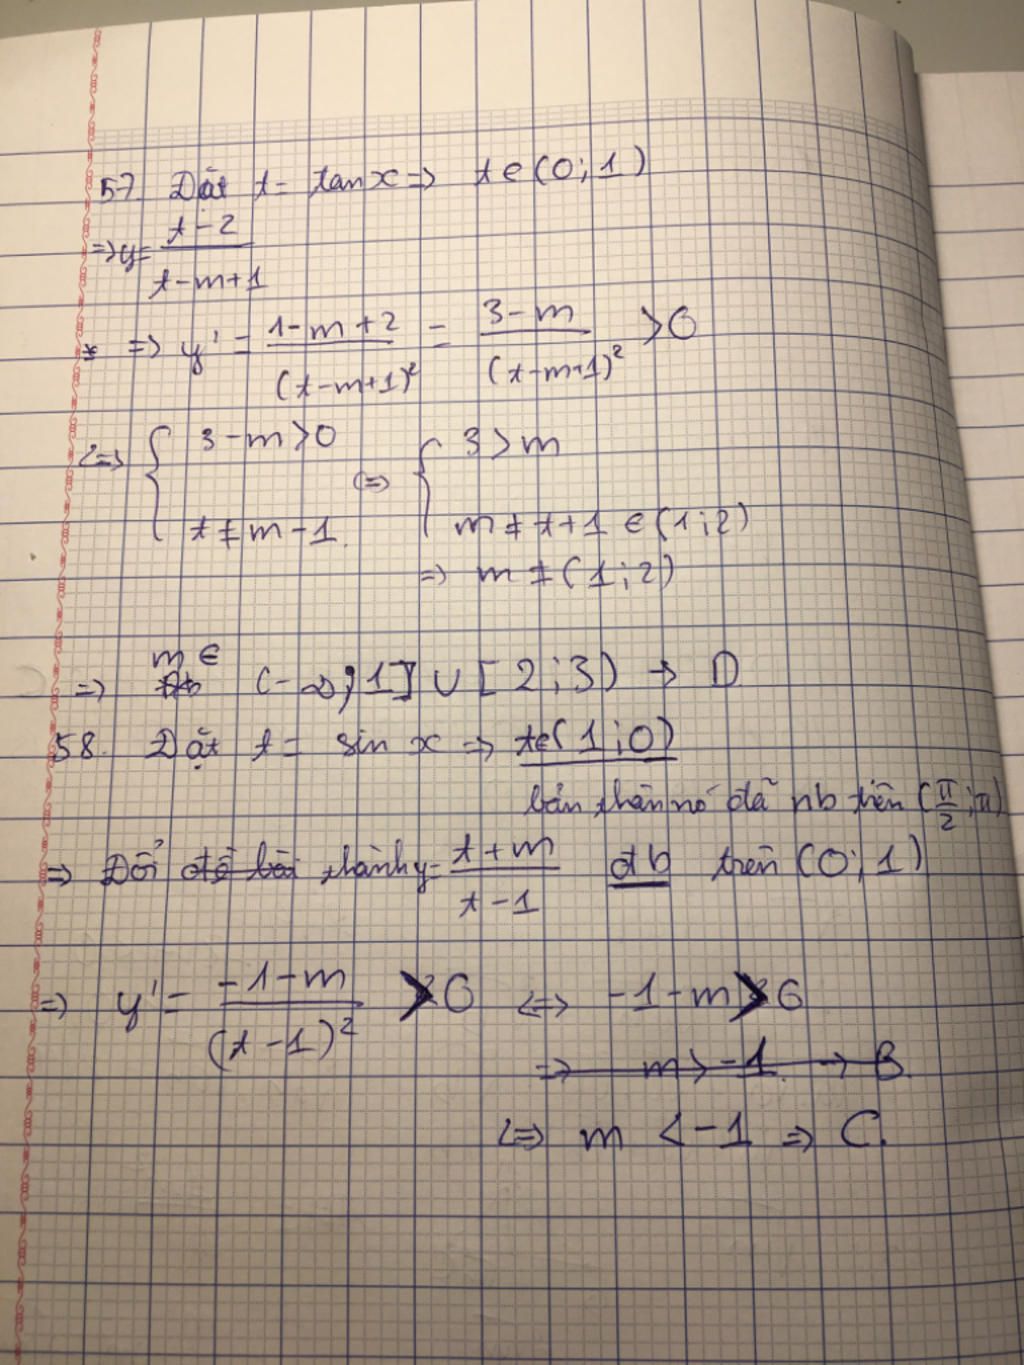 57. Đặt t = tanx => t ∈ (0; 1)
=> y = (t - 2)/(t - m + 1)
* => y' = (1 - m + 2)/(t - m + 1)² = (3 - m)/(t - m + 1)² > 0
<=> { 3 - m > 0 ; t ≠ m - 1. <=> { 3 > m ; m ≠ t + 1 ∈ (1; 2)
=> m ≠ (1; 2)
=> m ∈ (-∞; 1] ∪ [2; 3) → D
58. Đặt t = sin x => t ∈ (1; 0)
bản thân nó đã nb trên (π/2; π)
=> Đổi đề bài thành y = (t + m)/(t - 1) đb trên (0; 1)
=> y' = (-1 - m)/(t - 1)² > 0 <=> -1 - m > 0
=> m > -1. → B.
<=> m < -1 => C.